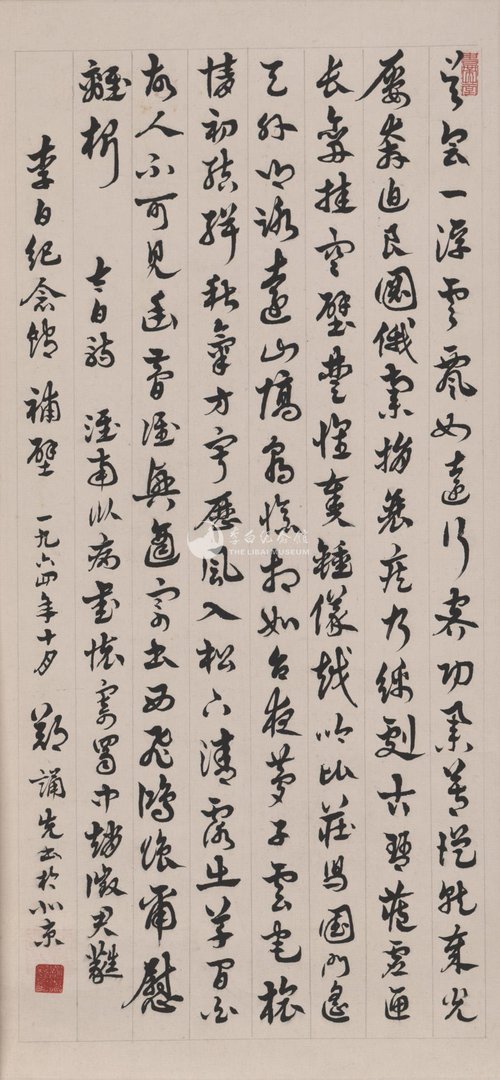 吳会一浮雲飄如遠行客功業莫從就歲光
屢奔迫良圖俄棄捐衰疾乃綿劇古琴藏虛匣
長劍挂空壁楚懷奏鍾儀越吟比莊舄國門遙
天外鄉路遠山隔朝憶相如台夜夢子雲宅旅
情初結緝秋氣方寂歷風入松下清露出草間白
故人不可見幽夢誰與適寄書西飛鴻贈爾慰
離析 太白詩 淮南臥病書懷寄蜀中趙徵君蕤
李白纪念馆 補壁 一九六四年十月 鄭誦先书於北京
李白纪念馆
THE LIBAI MUSEUM